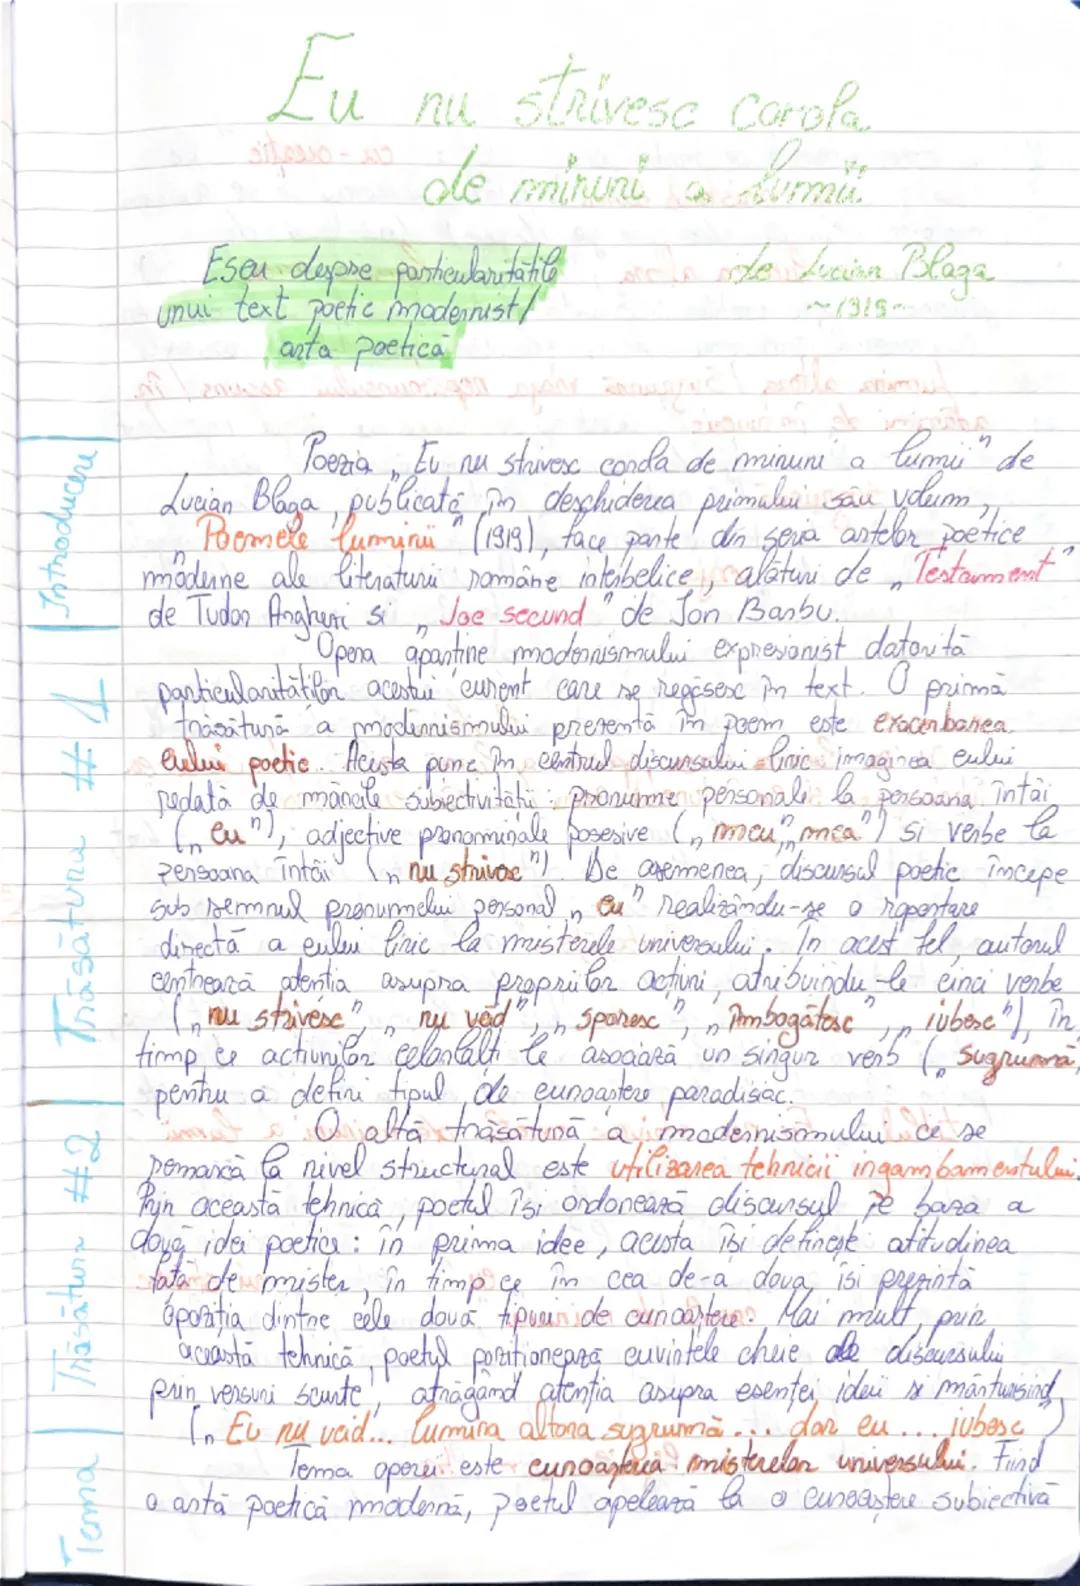 Eu nu strivesc corola
de minuni a lumii
Eseu despre particularitățile
unui text poetic modernist/
arta poetică
de Lucian Blaga
~1919~
Introducere
Poezia „Eu nu strivesc corola de minuni a lumii" de
Lucian Blaga, publicată în deschiderea primului său volum,
„Poemele luminii" (1919), face parte din seria artelor poetice
moderne ale literaturii române interbelice, alături de „Testament"
de Tudor Arghezi si „Joc secund" de Ion Barbu.
Trăsătura #1
Opera aparține modernismului expresionist datorită
particularităților acestui curent care se regăsesc în text. O primă
trăsătură a modernismului prezentă în poem este exacerbarea
eului poetic. Acesta pune în centrul discursului liric imaginea eului
redată de mărcile subiectivității: pronume personale la persoana întâi
(„eu"), adjective pronominale posesive („meu", „mea") si verbe la
persoana întâi („nu strivesc"). De asemenea, discursul poetic începe
sub semnul pronumelui personal „eu" realizându-se o raportare
directă a eului liric la misterele universului. În acest fel, autorul
centrează atenția asupra propriilor acțiuni, atribuindu-le cinci verbe
(„nu strivesc", „nu ucid", „sporesc", „îmbogățesc", „iubesc"), în
timp ce acțiunilor celorlalți le asociază un singur verb („sugrumă,
pentru a defini tipul de cunoaștere paradisiac.
Trăsătura #2
O altă trăsătură a modernismului ce se
remarcă la nivel structural este utilizarea tehnicii ingambamentului.
Prin această tehnică, poetul își ordonează discursul pe baza a
două idei poetice: în prima idee, acesta își definește atitudinea
față de mister, în timp ce în cea de-a doua, isi prezintă
opoziția dintre cele două tipuri de cunoaștere. Mai mult, prin
această tehnică, poetul poziționează cuvintele cheie ale discursului
prin versuri scurte, atrăgând atenția asupra esenței ideii si mărturisind
(„Eu nu ucid... lumina altora sugrumă... dar eu... iubesc")
Tema
Tema operei este cunoașterea misterelor universului. Fiind
o artă poetică modernă, poetul apelează la o cunoaștere subiectivă